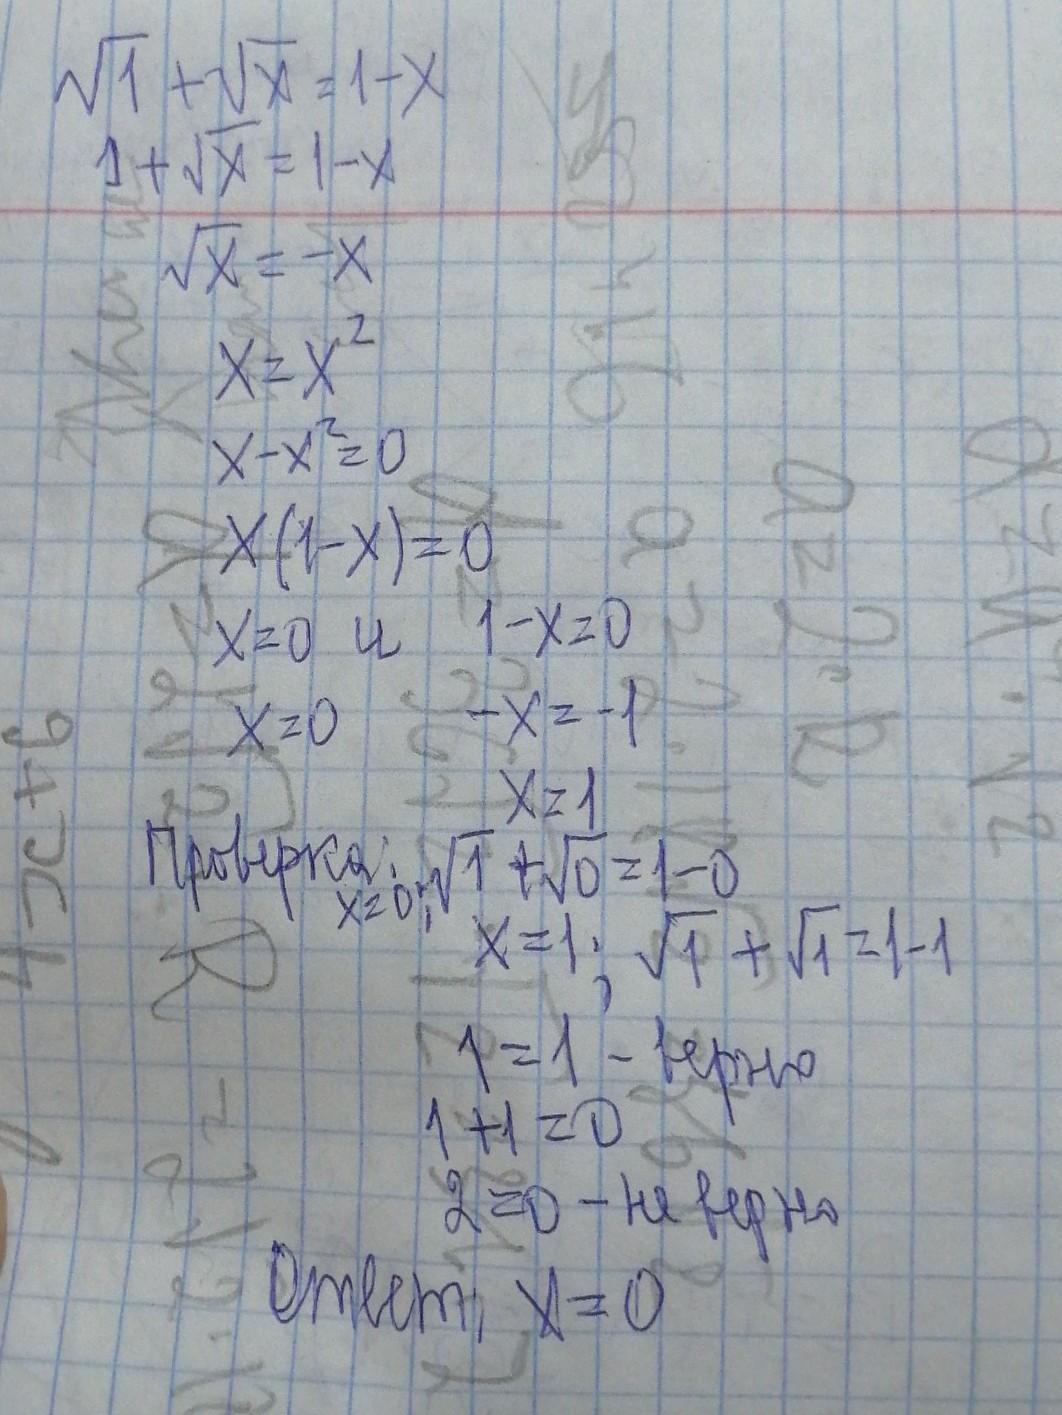 √1 + √x = 1-x
1 + √x = 1-x
√x = -x
x = x²
x-x² = 0
x(1-x) = 0
x=0 и 1-x=0
x=0 -x=-1
x=1
Проверка: x=0; √1 + √0 = 1-0
x=1; √1 + √1 = 1-1
1 = 1 - верно
1+1 = 0
2 = 0 - не верно
Ответ: x=0